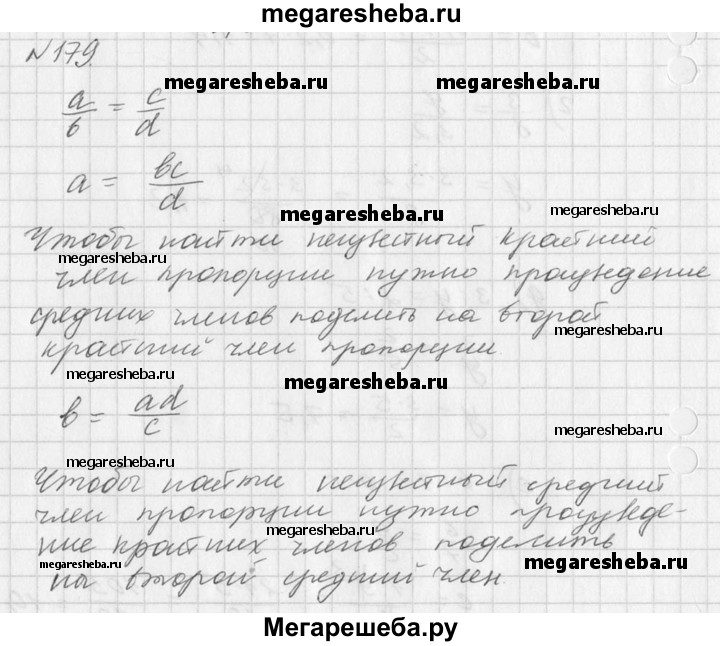 megaresheba.ru
№179.
megaresheba.ru megaresheba.ru
a/b = c/d
a = bc/d
megaresheba.ru
megaresheba.ru
Чтобы найти неизвестный крайний
megaresheba.ru
член пропорции нужно произведение
средних членов поделить на второй
megaresheba.ru
крайний член пропорции.
megaresheba.ru
megaresheba.ru
b = ad/c
megaresheba.ru
megaresheba.ru
Чтобы найти неизвестный средний
член пропорции нужно произведе-
megaresheba.ru
ние крайних членов поделить
megaresheba.ru
на второй средний член.
Мегарешеба.ру